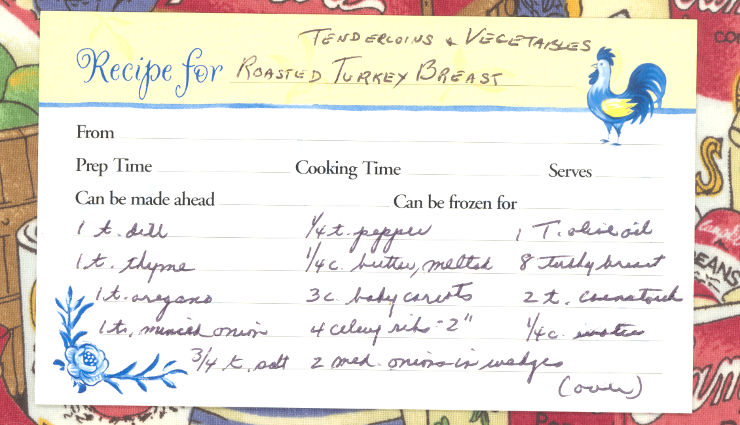 TENDERLOINS & VEGETABLES
Recipe for ROASTED TURKEY BREAST
From
Prep Time Cooking Time Serves
Can be made ahead Can be frozen for
1 t. dill 1/4 t. pepper 1 T. olive oil
1 t. thyme 1/4 c. butter, melted 8 turkey breast
1 t. oregano 3 c. baby carrots 2 t. cornstarch
1 t. minced onion 4 celery ribs - 2" 1/4 c. water
3/4 t. salt 2 med. onions in wedges
(over)
Campbell's
EANS